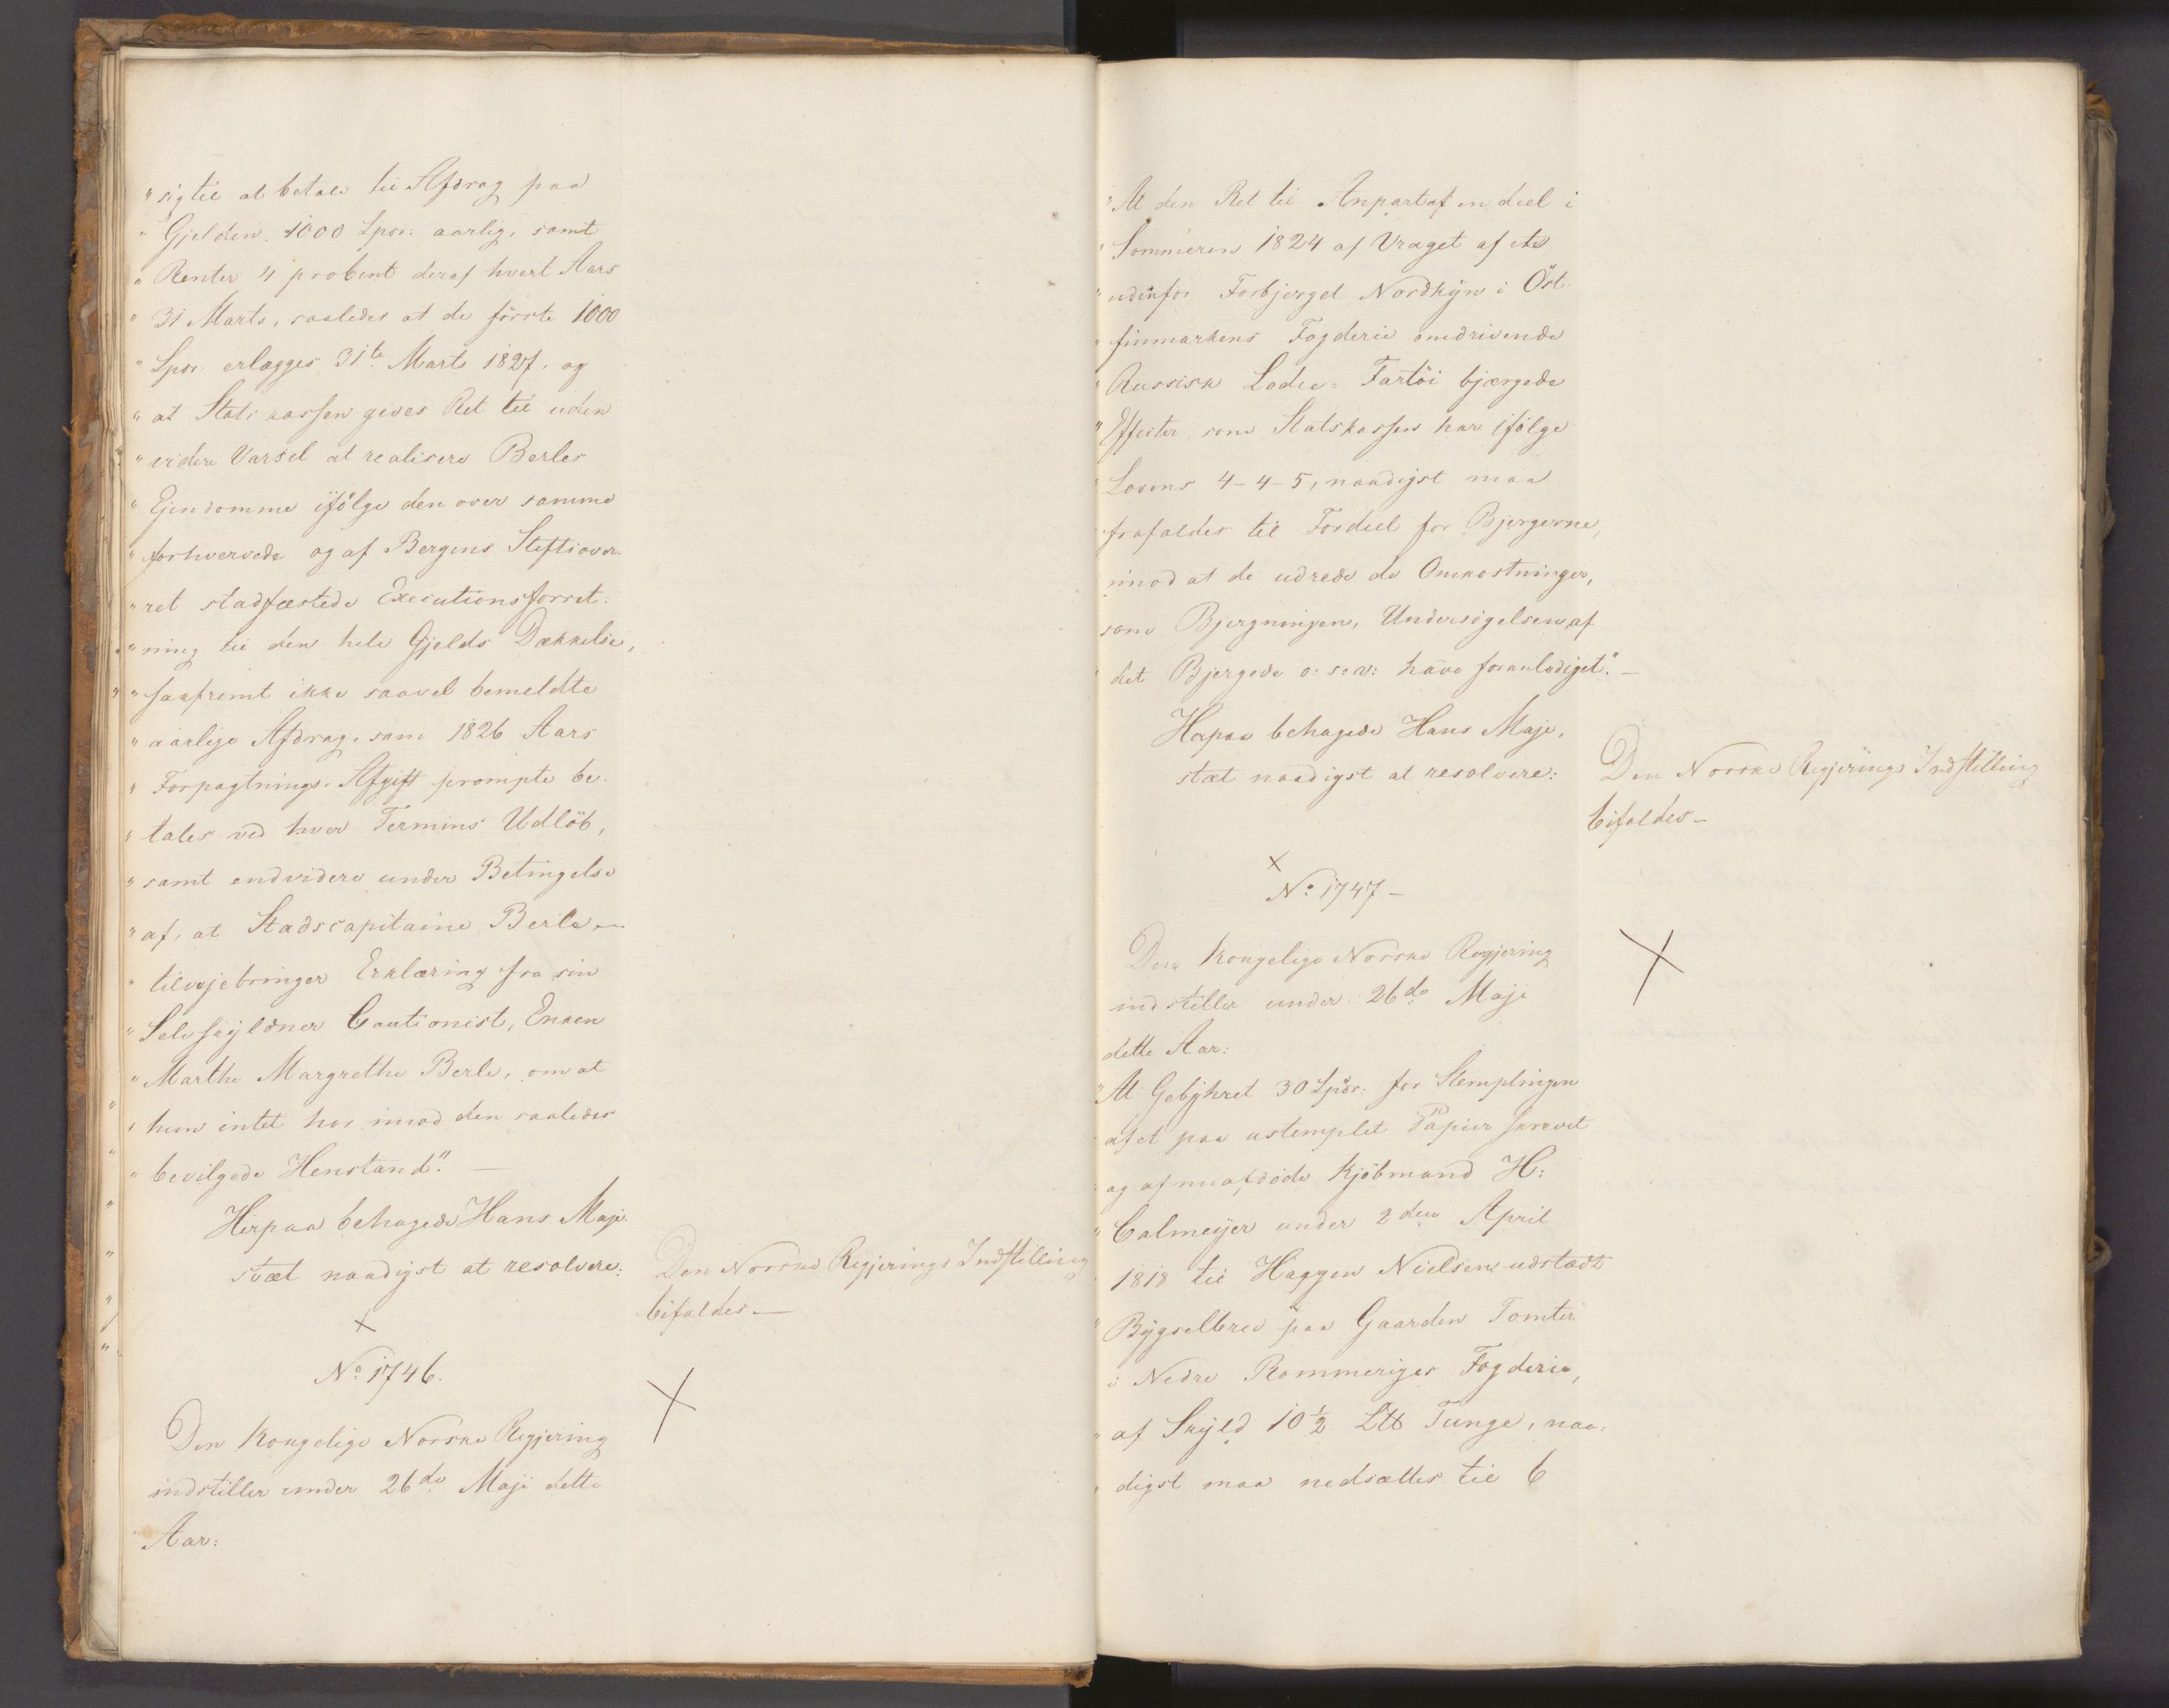 "sig til at betale til Afdrag paa
"Gjelden 1000 Spdr: aarlig, samt
"Renter 4 procent deraf hvert Aars
"31 Marts, saaledes at de förste 1000
"Spdr: erlægges 31te Marts 1827, og
"at Statskassen gives Ret til uden
"videre Varsel at realisere Berles
"Ejendomme ifölge den over samme
"forhvervede og af Bergens Stiftsover-
"ret stadfæstede Executionsforret-
"ning til den hele Gjelds Dækkelse,
"saafremt ikke saavel bemeldte
"aarlige Afdrag, som 1826 Aars
"Forpagtnings-Afgift prompte be-
"tales ved hver Termins Udlöb,
"samt endvidere under Betingelse
"af, at Stadscapitaine Berle
"tilvejebringer Erklæring fra sin
"Selvskyldner Cautionist, Enken
"Marthe Margrethe Berle, om at
"hun intet har imod den saaledes
"bevilgede Henstand". —
Herpaa behagede Hans Maje-
stæt naadigst at resolvere:
Den Norske Regjerings Indstilling
bifaldes —
×
No 1746.
Den Kongelige Norske Regjering
indstiller under 26de Maji dette
Aar:
"At den Ret til Anpart af en deel i
"Sommeren 1824 af Vraget af et
"udenfor Forbjerget Nordkyn i Öst-
"finmarkens Fogderie omdrivende
"Russisk Lodie-Fartöi bjærgede
"Effecter, som Statskassen har ifölge
"Lovens 4-4-5, naadigst maa
"frafaldes til Fordeel for Bjergerne,
imod at de udrede de Omkostninger,
som Bjergningen, Undersögelsen af
"det Bjergede o: s: v: have foranlediget". —
Herpaa behagede Hans Maje-
stæt naadigst at resolvere:
Den Norske Regjerings Indstilling
bifaldes —
×
No 1747 —
Den Kongelige Norske Regjering
indstiller under 26de Maji
dette Aar:
"At Gebyhret 30 Spdr: for Stemplingen
"af et paa ustemplet Papiir skrevet
"og af nu afdöde Kjöbmand H:
"Calmeyer under 2den April
"1818 til Haagen Nielsen udstædt
"Bygselbrev paa Gaarden Tomter
"i Nedre Rommeriges Fogderie,
"af Skyld 10 1/2 L℔ Tunge, naa-
"digst maa nedsættes til 6